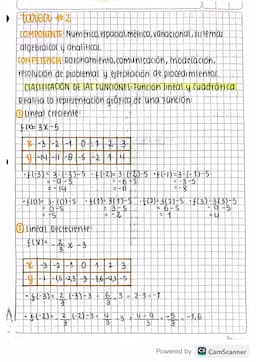 tarea #2
COMPONENTE: Numérico, espacial, métrico, variacional, sistemas
algebraicos y analíticos.
COMPETENCIA: Razonamiento, comunicación, modelación,
resolución de problemas y ejercitación de procedimientos.
CLASIFICACIÓN DE LAS FUNCIONES: Función lineal y cuadrática.
Realiza la representación gráfica de una función
① Lineal creciente
f(x) = 3x-5
x -3 -2 -1 0 1 2 3
y -14 -11 -8 -5 -2 1 4
·f(-3) = 3·(-3)-5 ·f(-2) = 3·(-2)-5 ·f(-1) = 3·(-1)-5
= -9-5 = -6-5 = -3-5
= -14 = -11 = -8
·f(0) = 3·(0)-5 ·f(1) = 3(1)-5 ·f(2) = 3(2)-5 ·f(3) = 3(3)-5
= 0-5 = 3-5 = 6-5 = 9-5
= -5 = -2 = 1 = 4
② Lineal Decreciente
f(x) = -2/3 x - 3
x -3 -2 -1 0 1 2 3
Powered by CS CamScanner